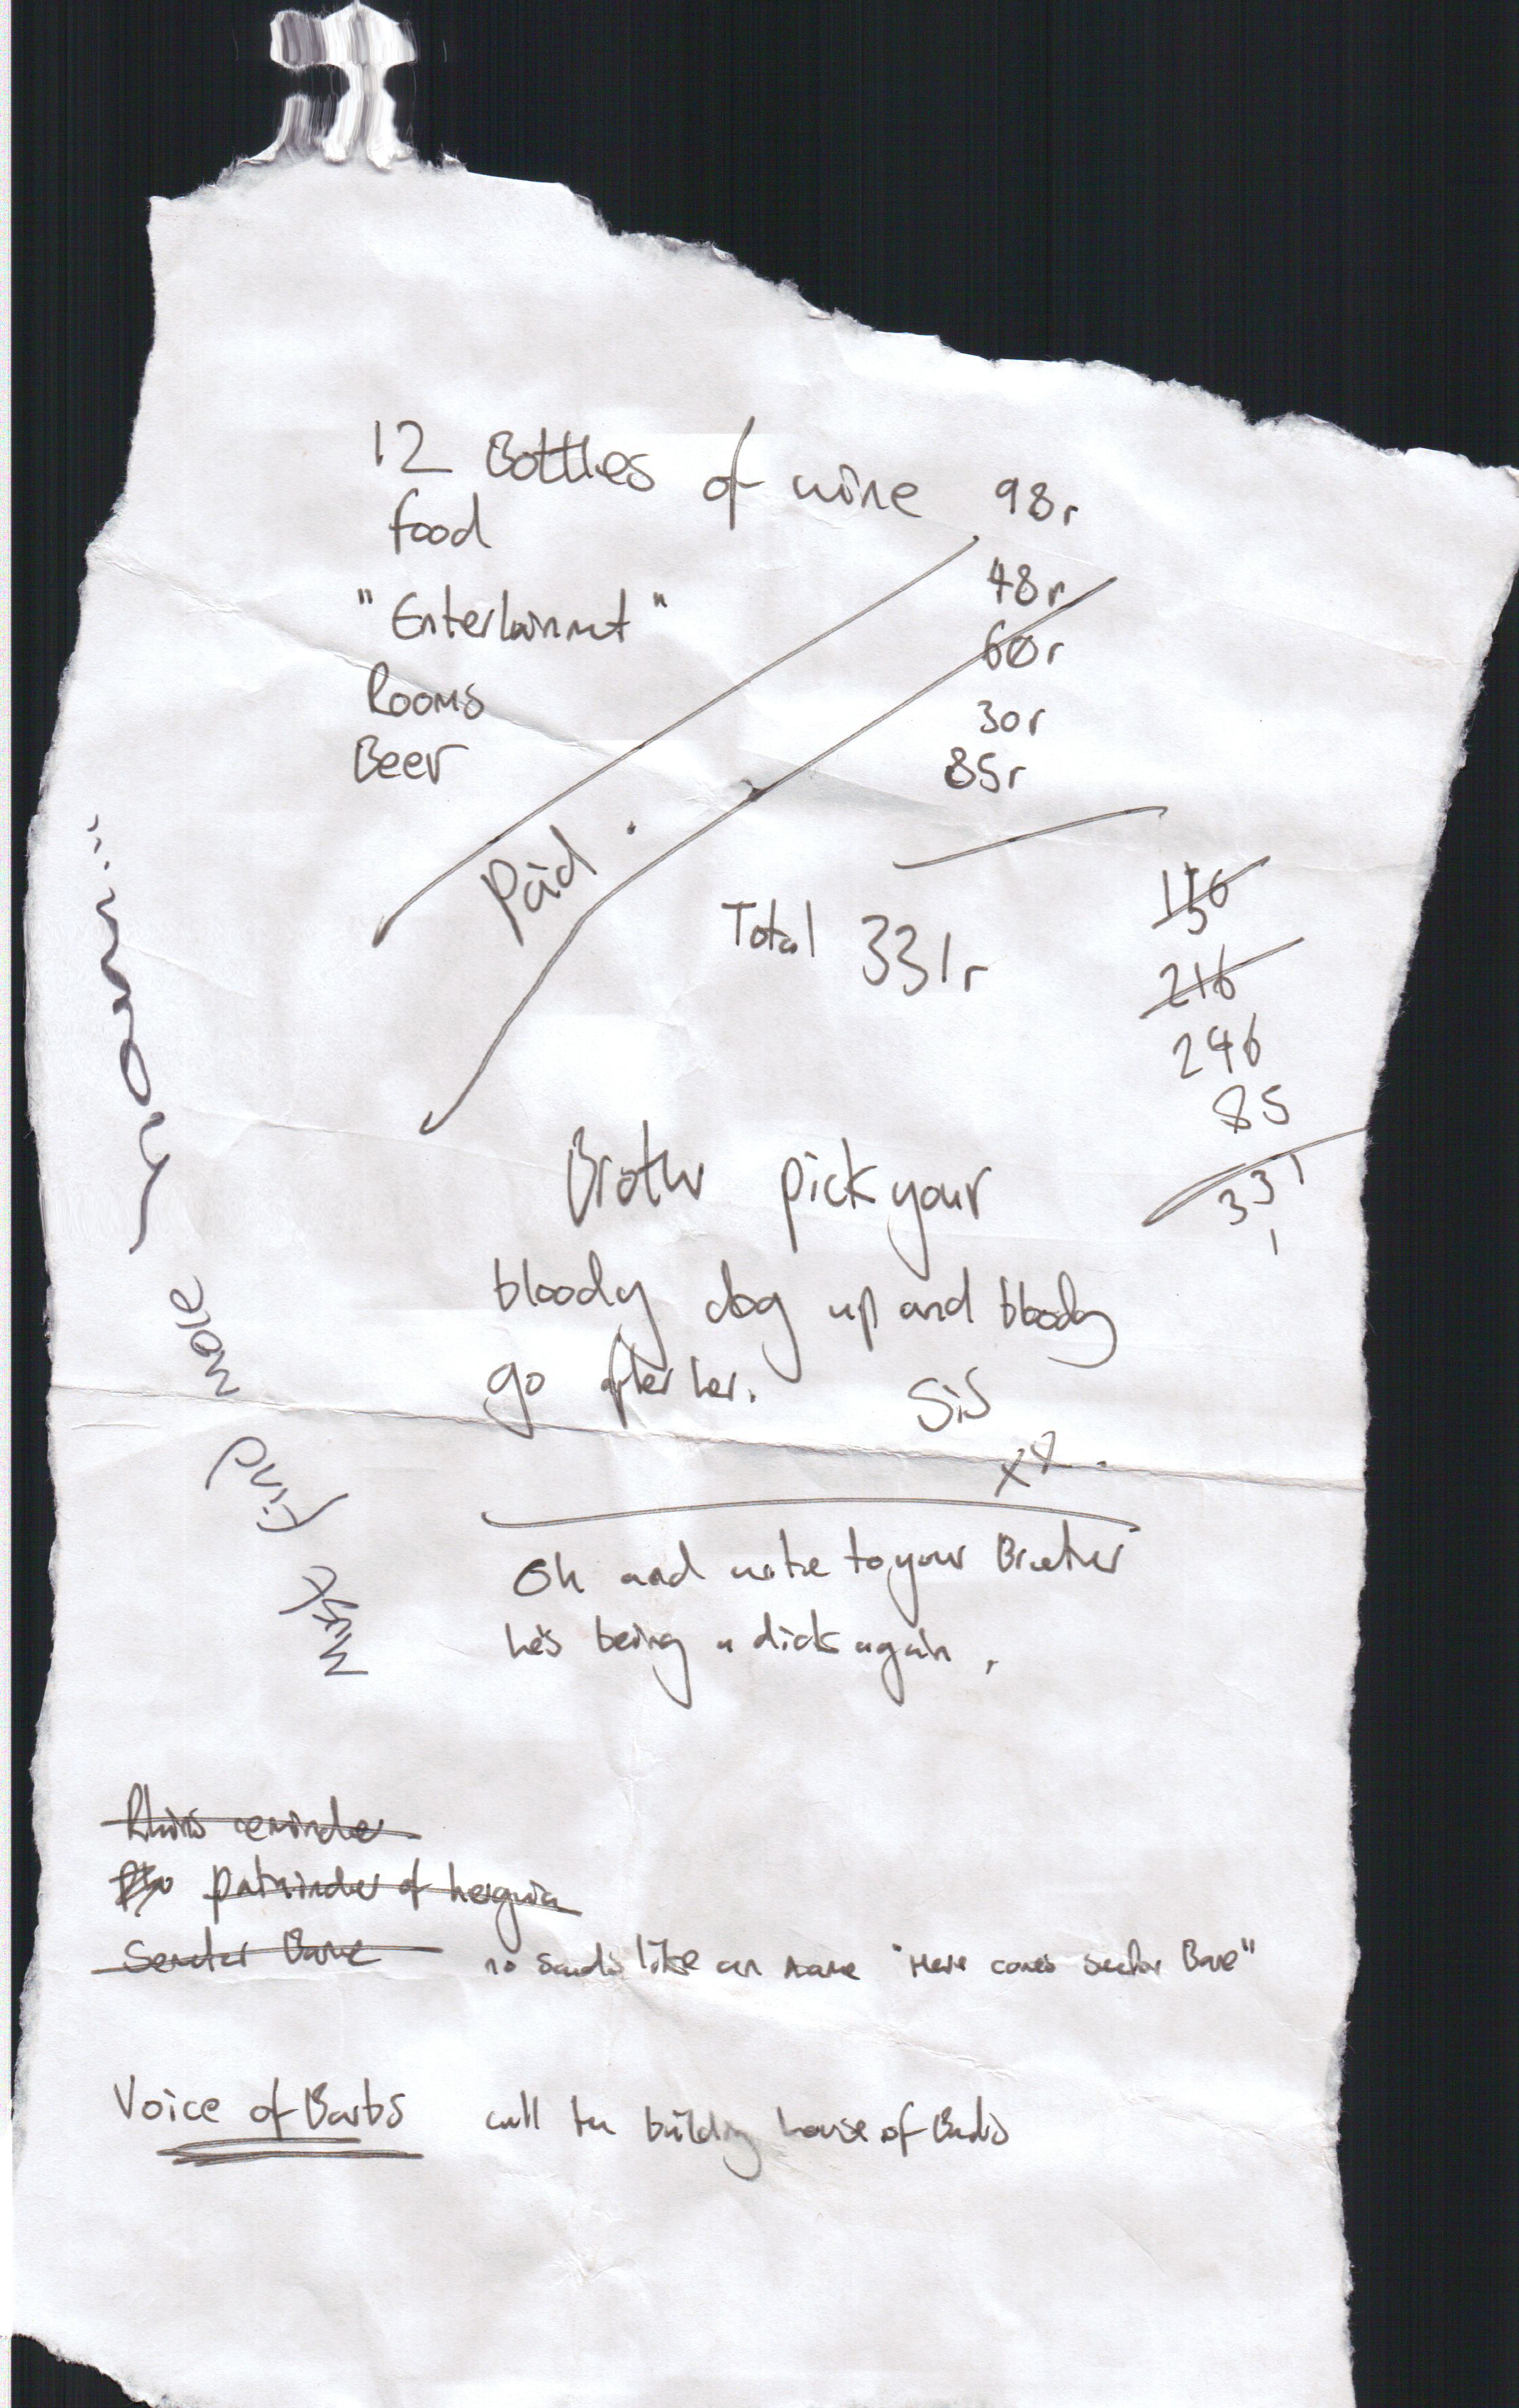 12 Bottles of wine 98r
food 48r
"Entertainmt" 60r
Rooms 30r
Beer 85r
Paid.
Total 331r
156
216
246
85
331
1
Brother pick your
bloody dog up and bloody
go after her.
Sis
xx.
Oh and note to your Brother
he's being a dick again.
Must Find more
reminder
of
no like Here comes
Voice of Bards call the building house of Bards